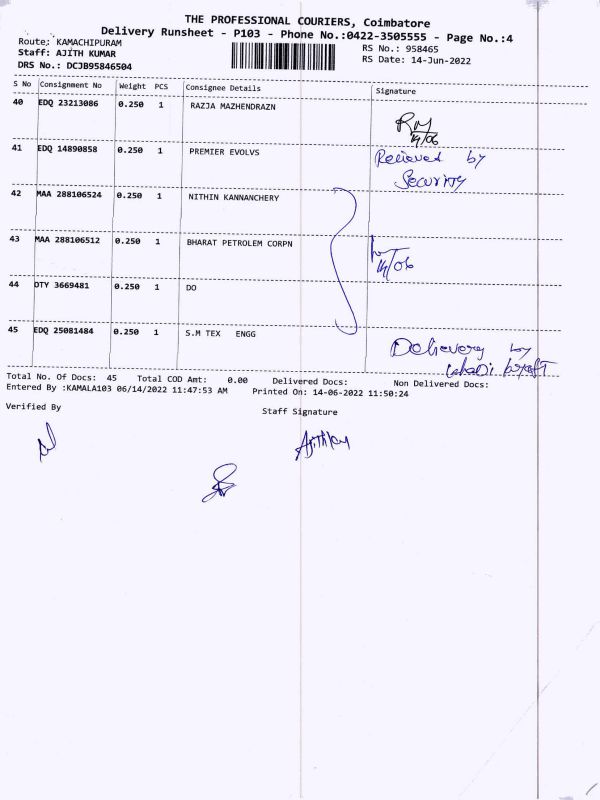 THE PROFESSIONAL COURIERS, Coimbatore
Delivery Runsheet - P103 - Phone No.:0422-3505555 - Page No.:4
Route: KAMACHIPURAM
Staff: AJITH KUMAR
DRS No.: DCJB95846504
RS No.: 958465
RS Date: 14-Jun-2022
S No Consignment No Weight PCS Consignee Details Signature
40 EDQ 23213086 0.250 1 RAZJA MAZHENDRAZN
RM
14/06
41 EDQ 14890858 0.250 1 PREMIER EVOLVS
Recieved by
Security
42 MAA 288106524 0.250 1 NITHIN KANNANCHERY
43 MAA 288106512 0.250 1 BHARAT PETROLEM CORPN
14/06
44 DTY 3669481 0.250 1 DO
45 EDQ 25081484 0.250 1 S.M TEX ENGG
Delievery by
Total No. Of Docs: 45 Total COD Amt: 0.00 Delivered Docs: Non Delivered Docs:
Entered By :KAMALA103 06/14/2022 11:47:53 AM Printed On: 14-06-2022 11:50:24
Verified By Staff Signature